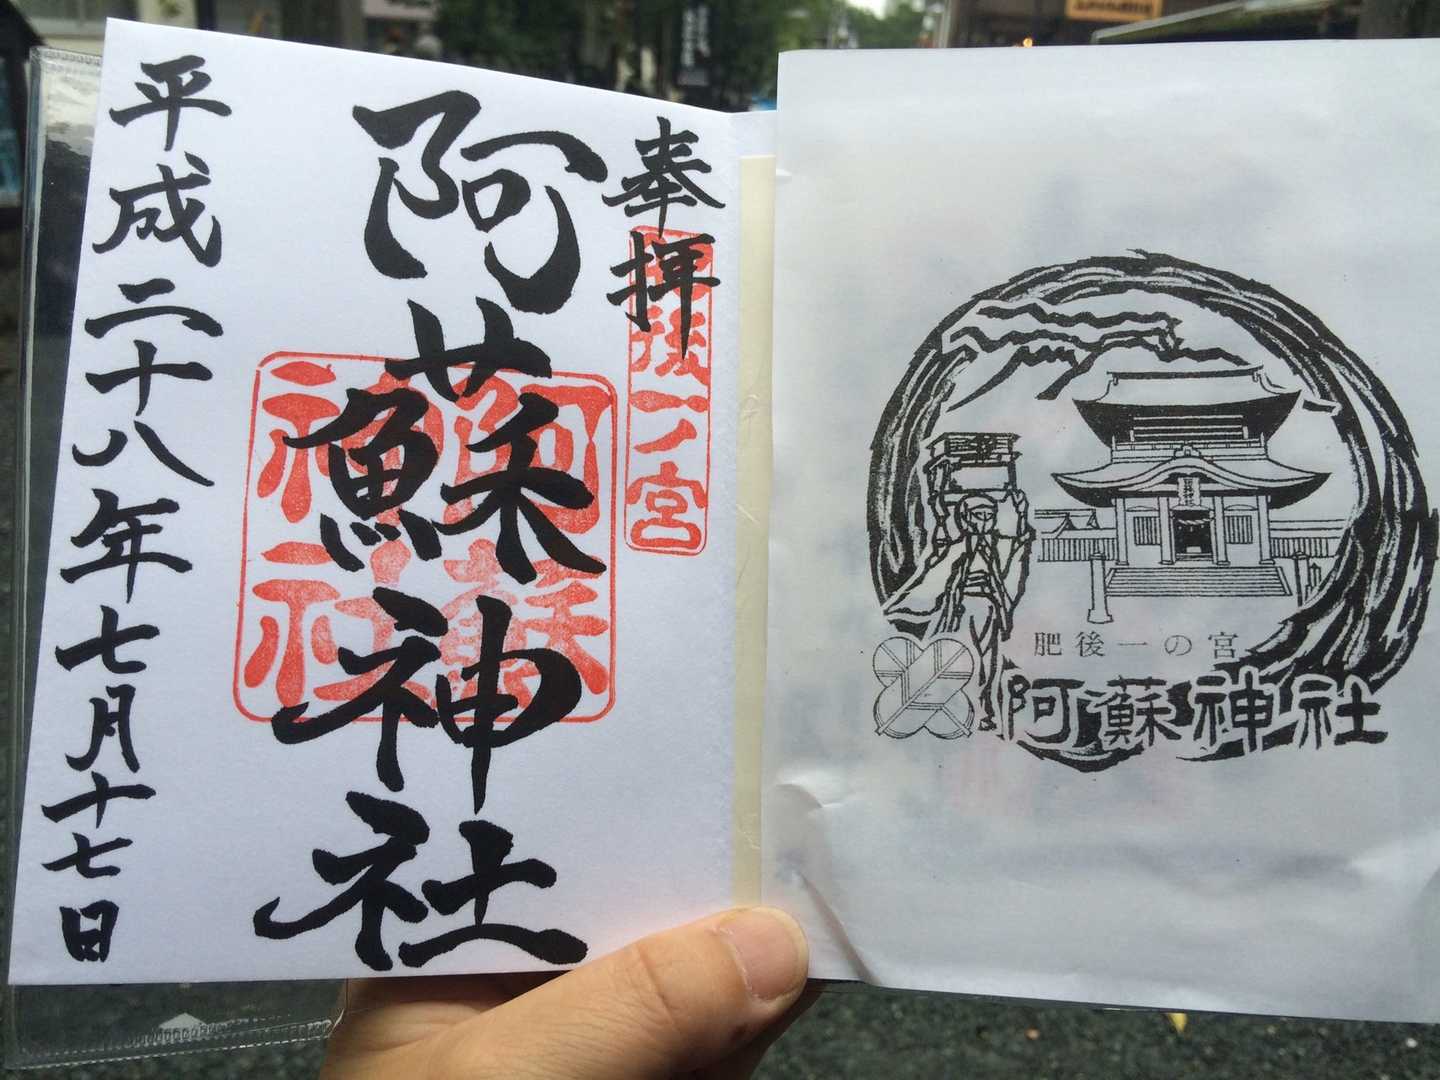 奉拝
肥後一ノ宮
阿蘇神社
阿蘇
神社
平成二十八年七月十七日
肥後一の宮
阿蘇神社